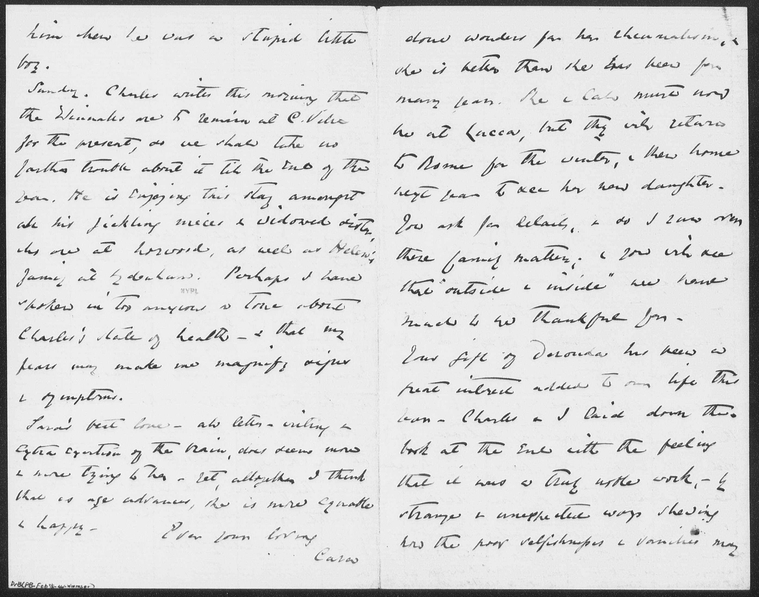 him when he was a stupid little
boy.
Sunday. Charles writes this morning that
the are to remain at C. Villa
for the present, so we shall take no
further trouble about it till the End of the
year. He is Enjoying this stay amongst
all his nieces & widowed sister,
who are at , as well as Helen's
family at Sydenham. Perhaps I have
spoken in too anxious a tone about
Charles's state of health – & that my
fears may make me magnify signs
& symptoms.
Sara's best love – all letter-writing &
Extra Exertion of the brain, does seem more
& more trying to her – yet, altogether I think
that as age advances, she is more Equable
& happy –
Ever your loving
Cara
done wonders for her rheumatism, &
she is better than she has been for
many years. She & must now
be at Lucca, but they will return
to Rome for the winter, & then home
next year to see her new daughter –
You ask for details, & so I run over
these family matters. & you will see
that "outside & inside" we have
much to be thankful for –
Your gift of Deronda has been a
great interest added to our life this
year – Charles & I laid down the
book at the End with the feeling
that it was a truly noble work, – by
strange & unexpected ways shewing
how the poor selfishnesses & vanities may